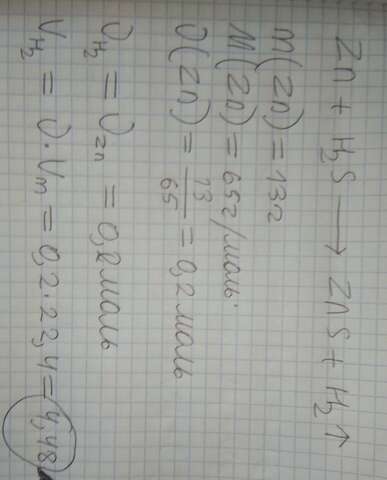 Zn + H₂S → ZnS + H₂↑
m(Zn) = 13г
M(Zn) = 65г/моль.
ν(Zn) = 13/65 = 0,2 моль
ν H₂ = ν Zn = 0,2 моль
V H₂ = ν · Vm = 0,2 · 22,4 = 4,48